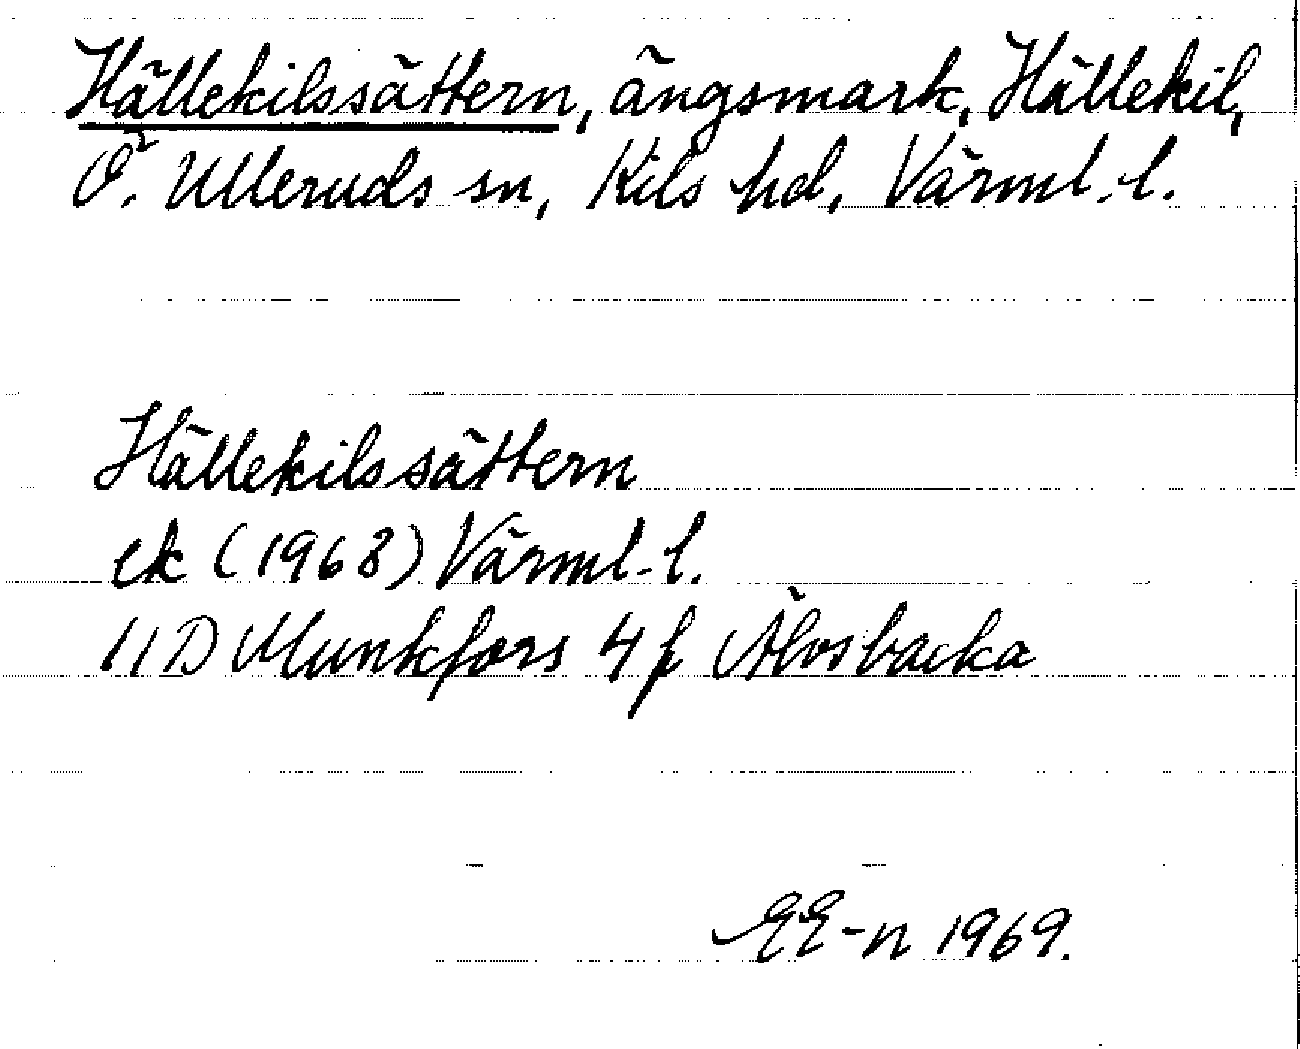 Hällekilssättern, ängsmark, Hällekil,
Ö. Ulleruds sn, Kils hd, Värml. l.
Hällekilssättern
ek (1968) Värml. l.
11D Munkfors 4f Älvsbacka
EE-n 1969.